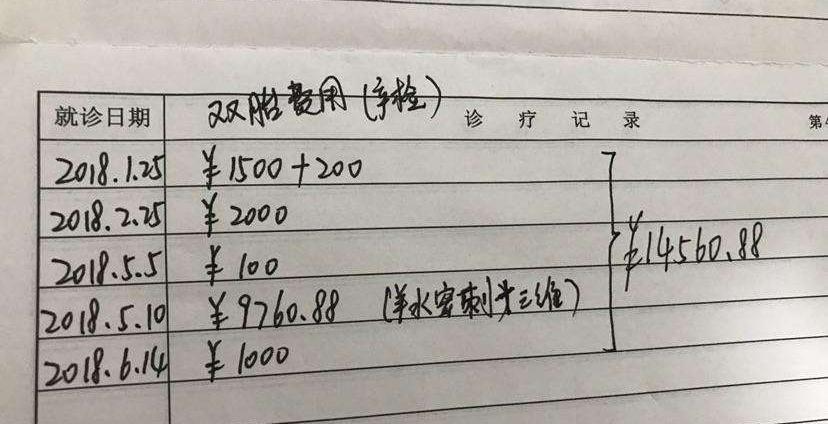 双胎费用(产检)
就诊日期 诊 疗 记 录 第
2018.1.25 ¥1500+200
2018.2.25 ¥2000
¥14560.88
2018.5.5 ¥100
2018.5.10 ¥9760.88 (羊水穿刺 三维)
2018.6.14 ¥1000